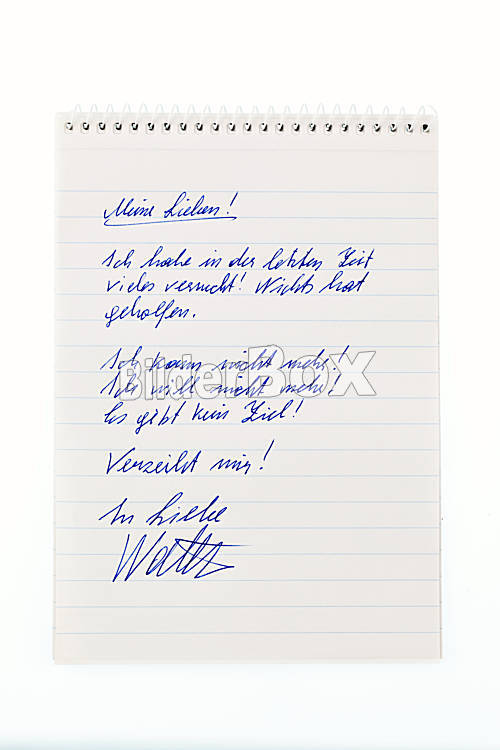 Meine Lieben!
Ich habe in der letzten Zeit
vieles versucht! Nichts hat
geholfen.
Ich kann nicht mehr!
BilderBOX
Ich will nicht mehr!
Es gibt kein Ziel!
Verzeiht mir!
In Liebe